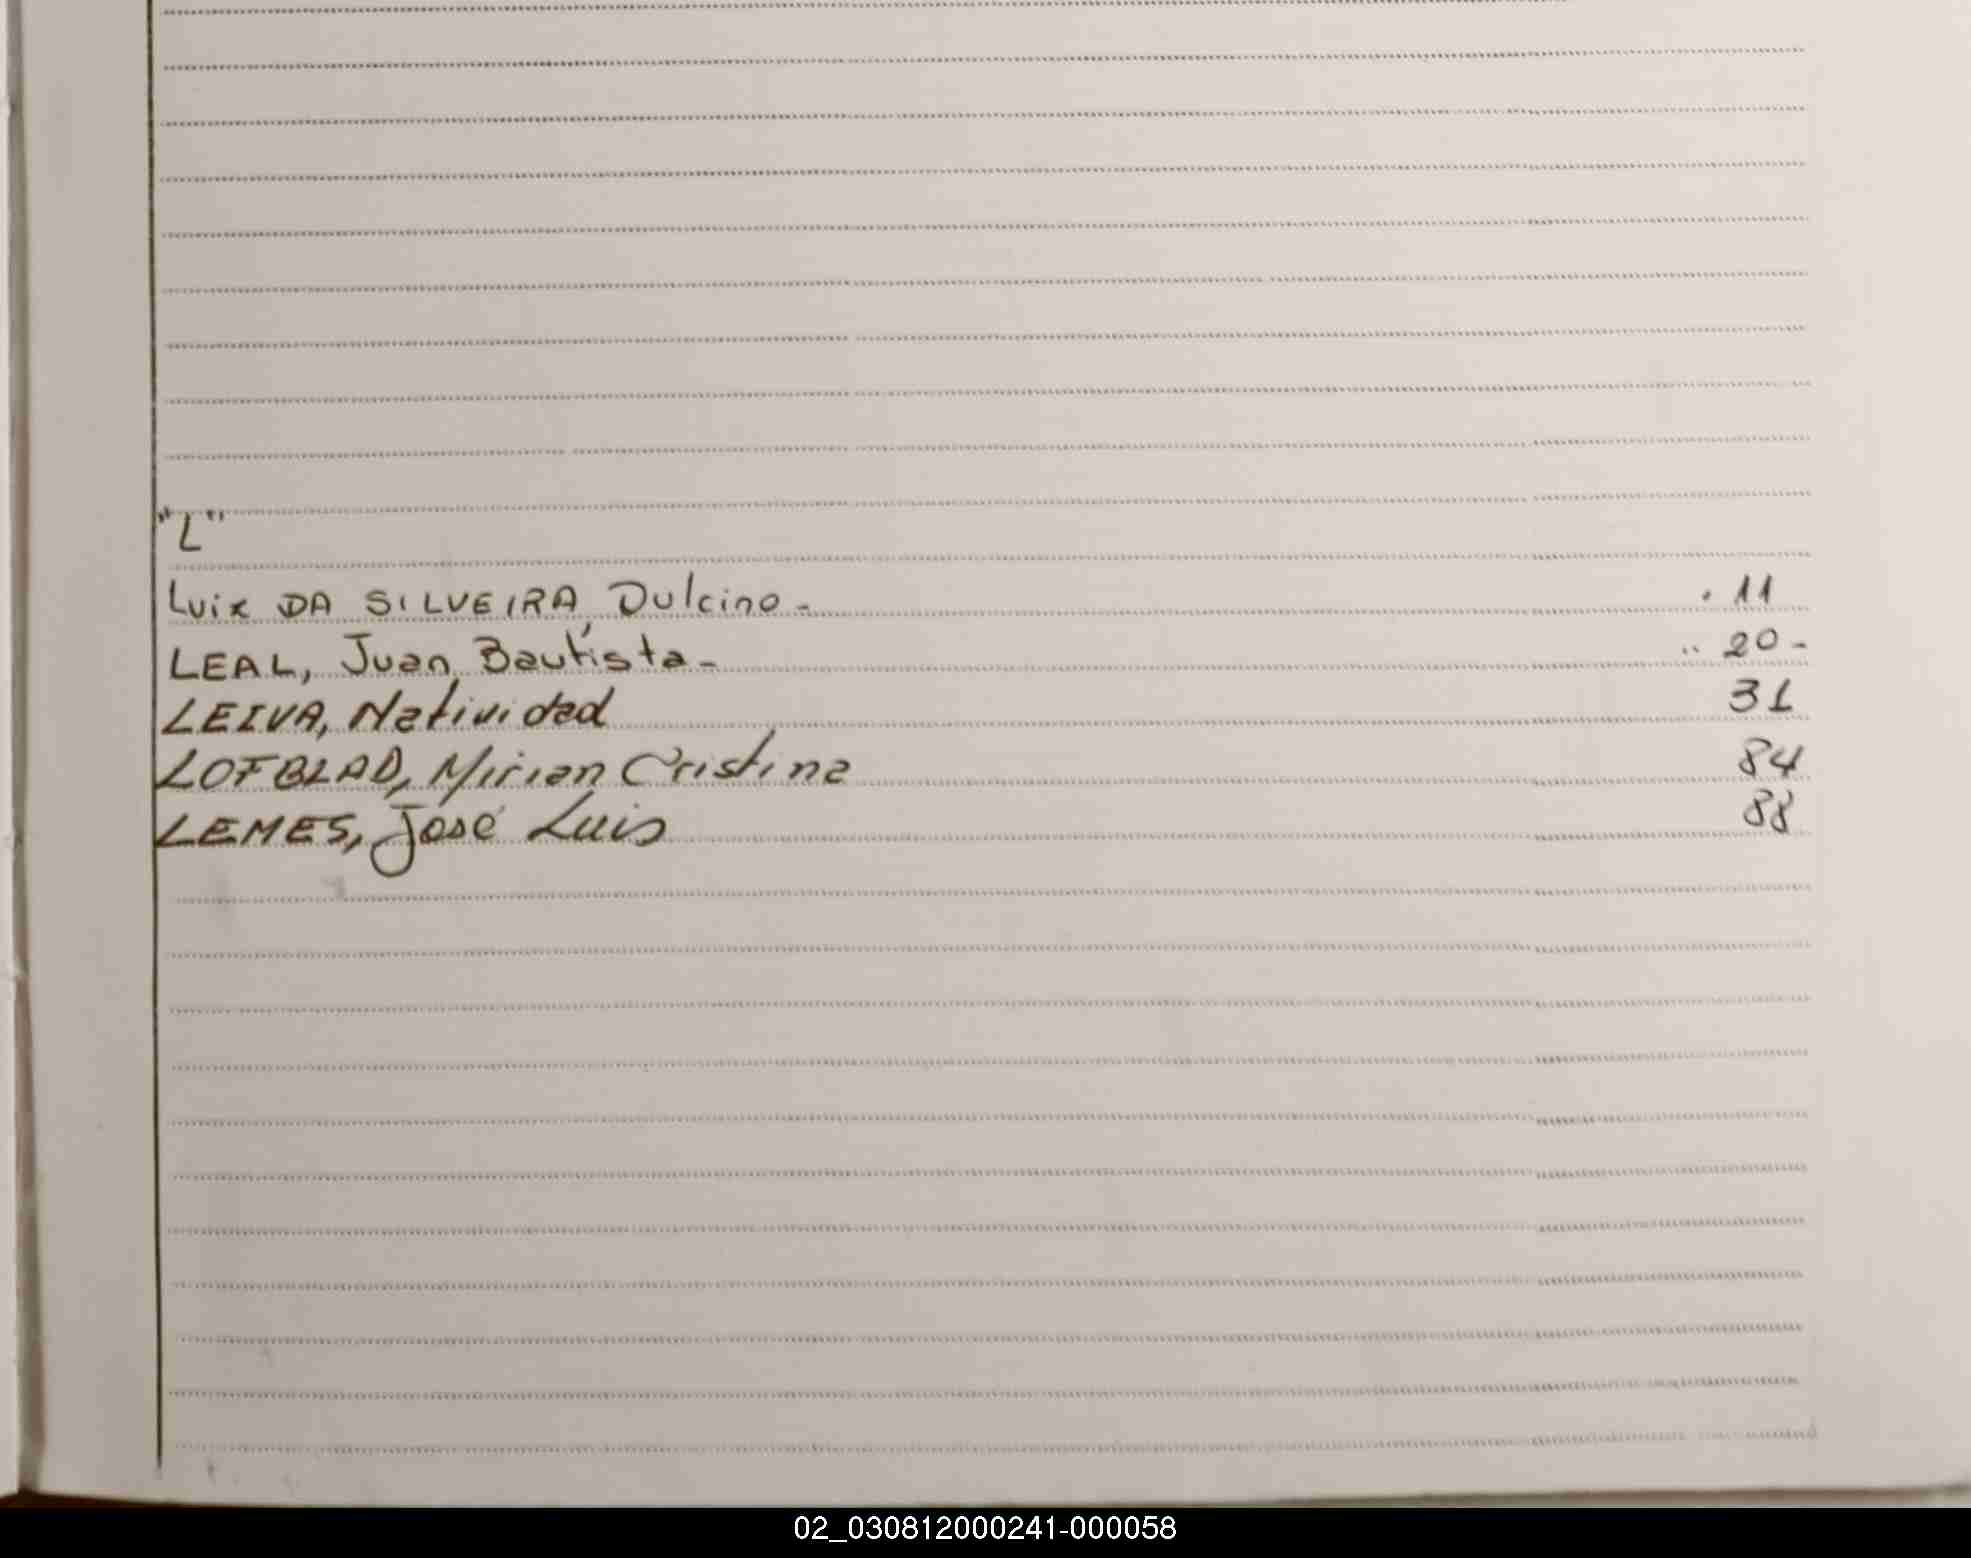 "L"
Luix DA SILVEIRA, Dulcino - . 11
LEAL, Juan Bautista - .. 20 -
LEIVA, Natividad 31
LOFBLAD, Mirian Cristina 84
LEMES, José Luis 88
02_030812000241-000058